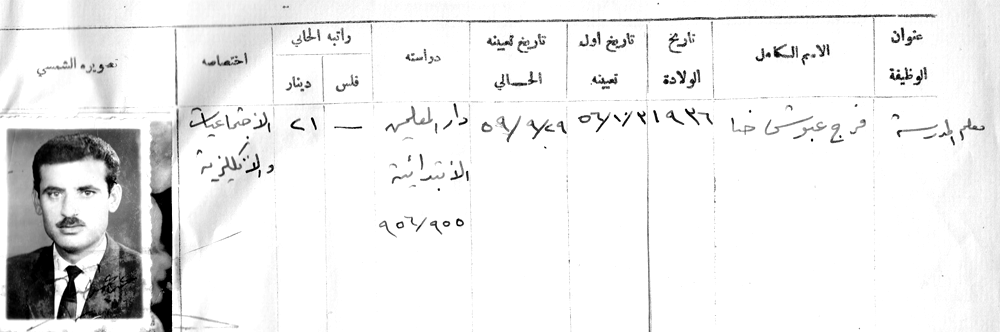 عنوان الوظيفة
الاسم الكامل
تاريخ الولادة
تاريخ اول تعيينه
تاريخ تعيينه الحالي
دراسته
راتبه الحالي
فلس
دينار
اختصاصه
تصويره الشمسي
معلم المدرسة
فرج عبوش حنا
١٩٣٦
٥٦/١٠/٣
٥٩/٩/٢٩
دار المعلمين
الابتدائية
٩٥٦/٩٥٥
—
٢١
الاجتماعيات
والانكليزية